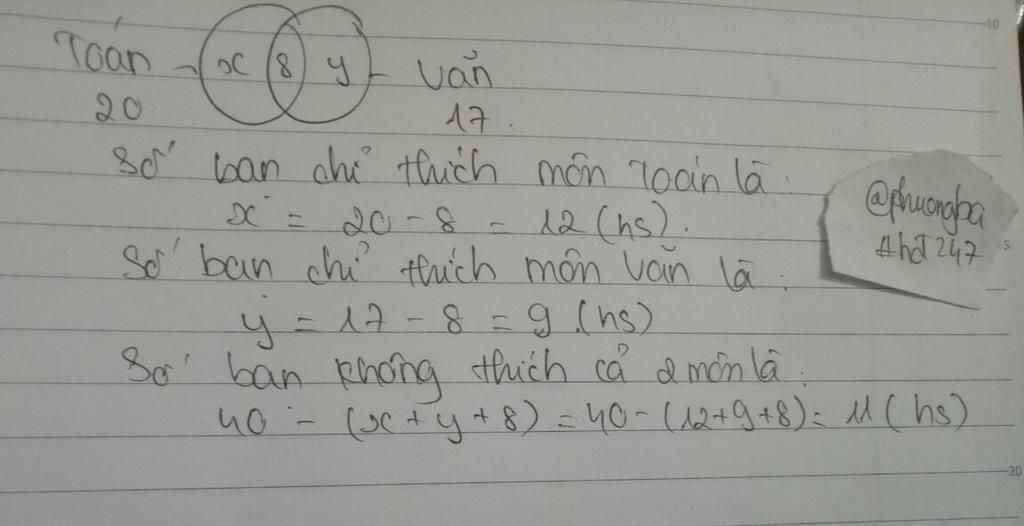 Toán x 8 y Văn
20 17.
Số bạn chỉ thích môn Toán là:
x = 20 - 8 = 12 (hs).
Số bạn chỉ thích môn văn là:
y = 17 - 8 = 9 (hs)
Số bạn không thích cả 2 môn là:
40 - (x + y + 8) = 40 - (12+9+8) = 11 (hs)
@phuongba
#hd247
10
5
20